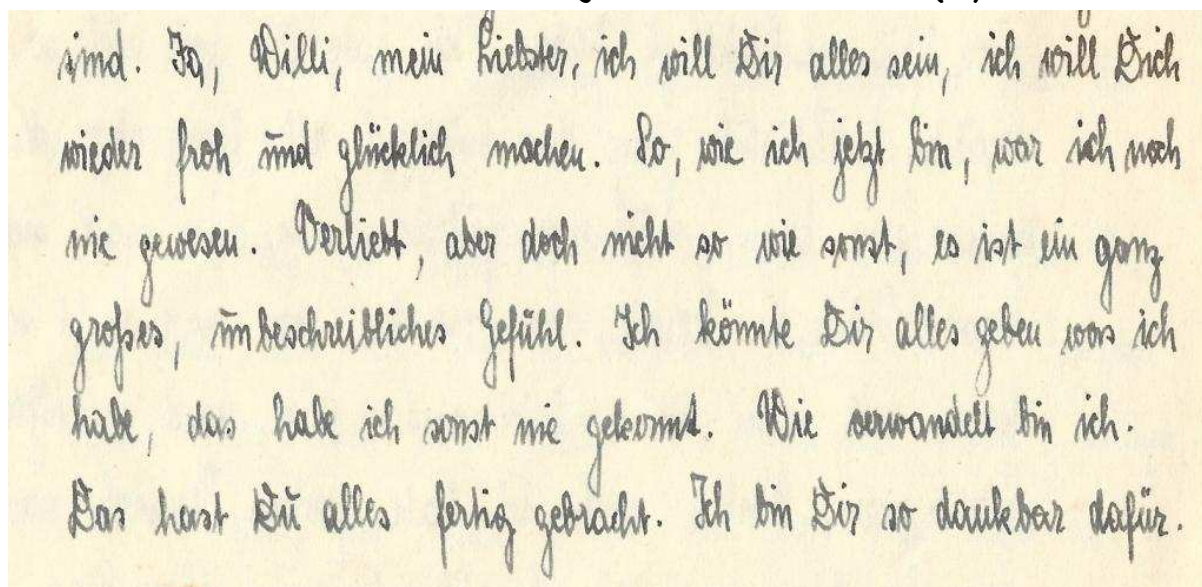 sind. Ja, Willi, mein Liebster, ich will Dir alles sein, ich will Dich
wieder froh und glücklich machen. So, wie ich jetzt bin, war ich noch
nie gewesen. Verliebt, aber doch nicht so wie sonst, es ist ein ganz
großes, unbeschreibliches Gefühl. Ich könnte Dir alles geben was ich
habe, das habe ich sonst nie gekonnt. Wie verwandelt bin ich.
Das hast Du alles fertig gebracht. Ich bin Dir so dankbar dafür.